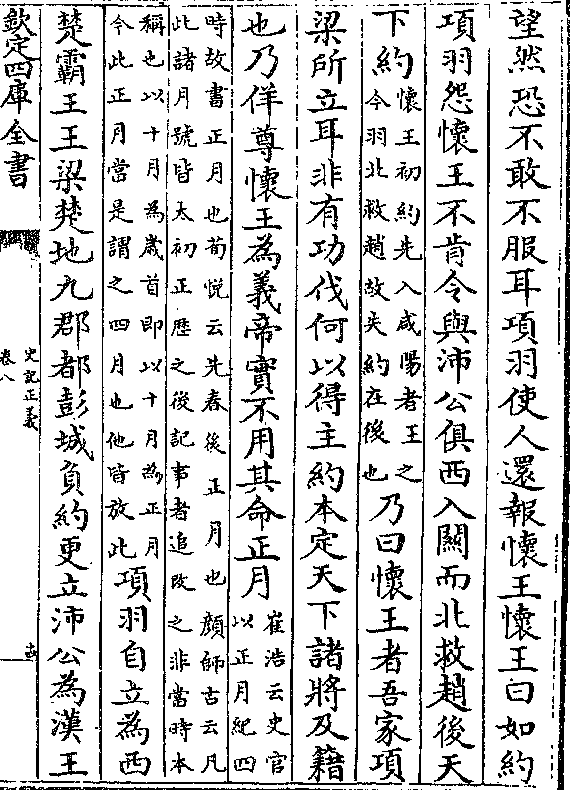 望然恐不敢不服耳項羽使人還報懷王懷王曰如約
項羽怨懷王不肯令與沛公俱西入關而北救趙後天
下約懷王初約先入咸陽者王之今羽北救趙故失約在後也乃曰懷王者吾家項
梁所立耳非有功伐何以得主約本定天下諸將及籍
也乃佯尊懷王為義帝實不用其命正月崔浩云史官以正月紀四
時故書正月也荀悦云先春後正月也顔師古云凡此諸月號皆太初正歴之後記事者追改之非當時本
稱也以十月為歲首即以十月為正月今此正月當是謂之四月也他皆放此項羽自立為西
楚霸王王梁楚地九郡都彭城負約更立沛公為漢王
欽定四庫全書
史記正義
卷八